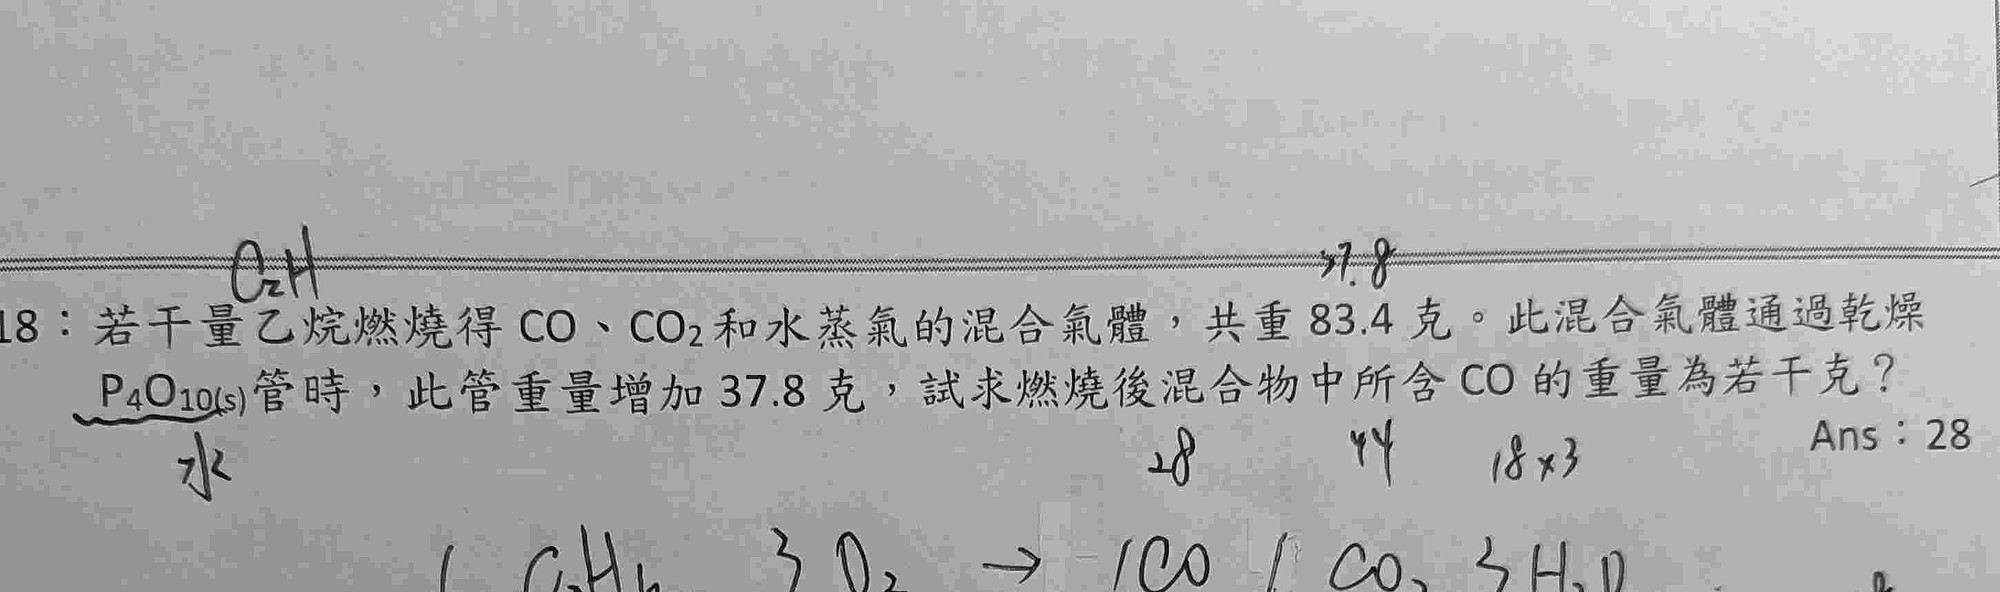 C₂H
37.8
18：若干量乙烷燃燒得 CO、CO₂ 和水蒸氣的混合氣體，共重 83.4 克。此混合氣體通過乾燥
P₄O₁₀(s)管時，此管重量增加 37.8 克，試求燃燒後混合物中所含 CO 的重量為若干克？
Ans：28
水 28 44 18×3
1 C₂H₆ 3 O₂ → 1CO 1 CO₂ 3 H₂O